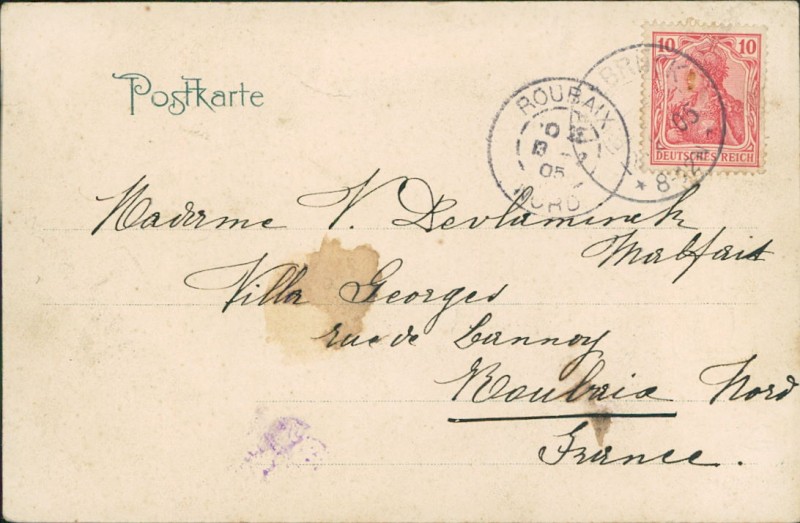 Postkarte
10 10
DEUTSCHES REICH
ROUBAIX
05
NORD
05
* 8-
Madame V. Devlaminck
Malfait
Villa Georges
rue de Lannoy
Roubaix Nord
France.